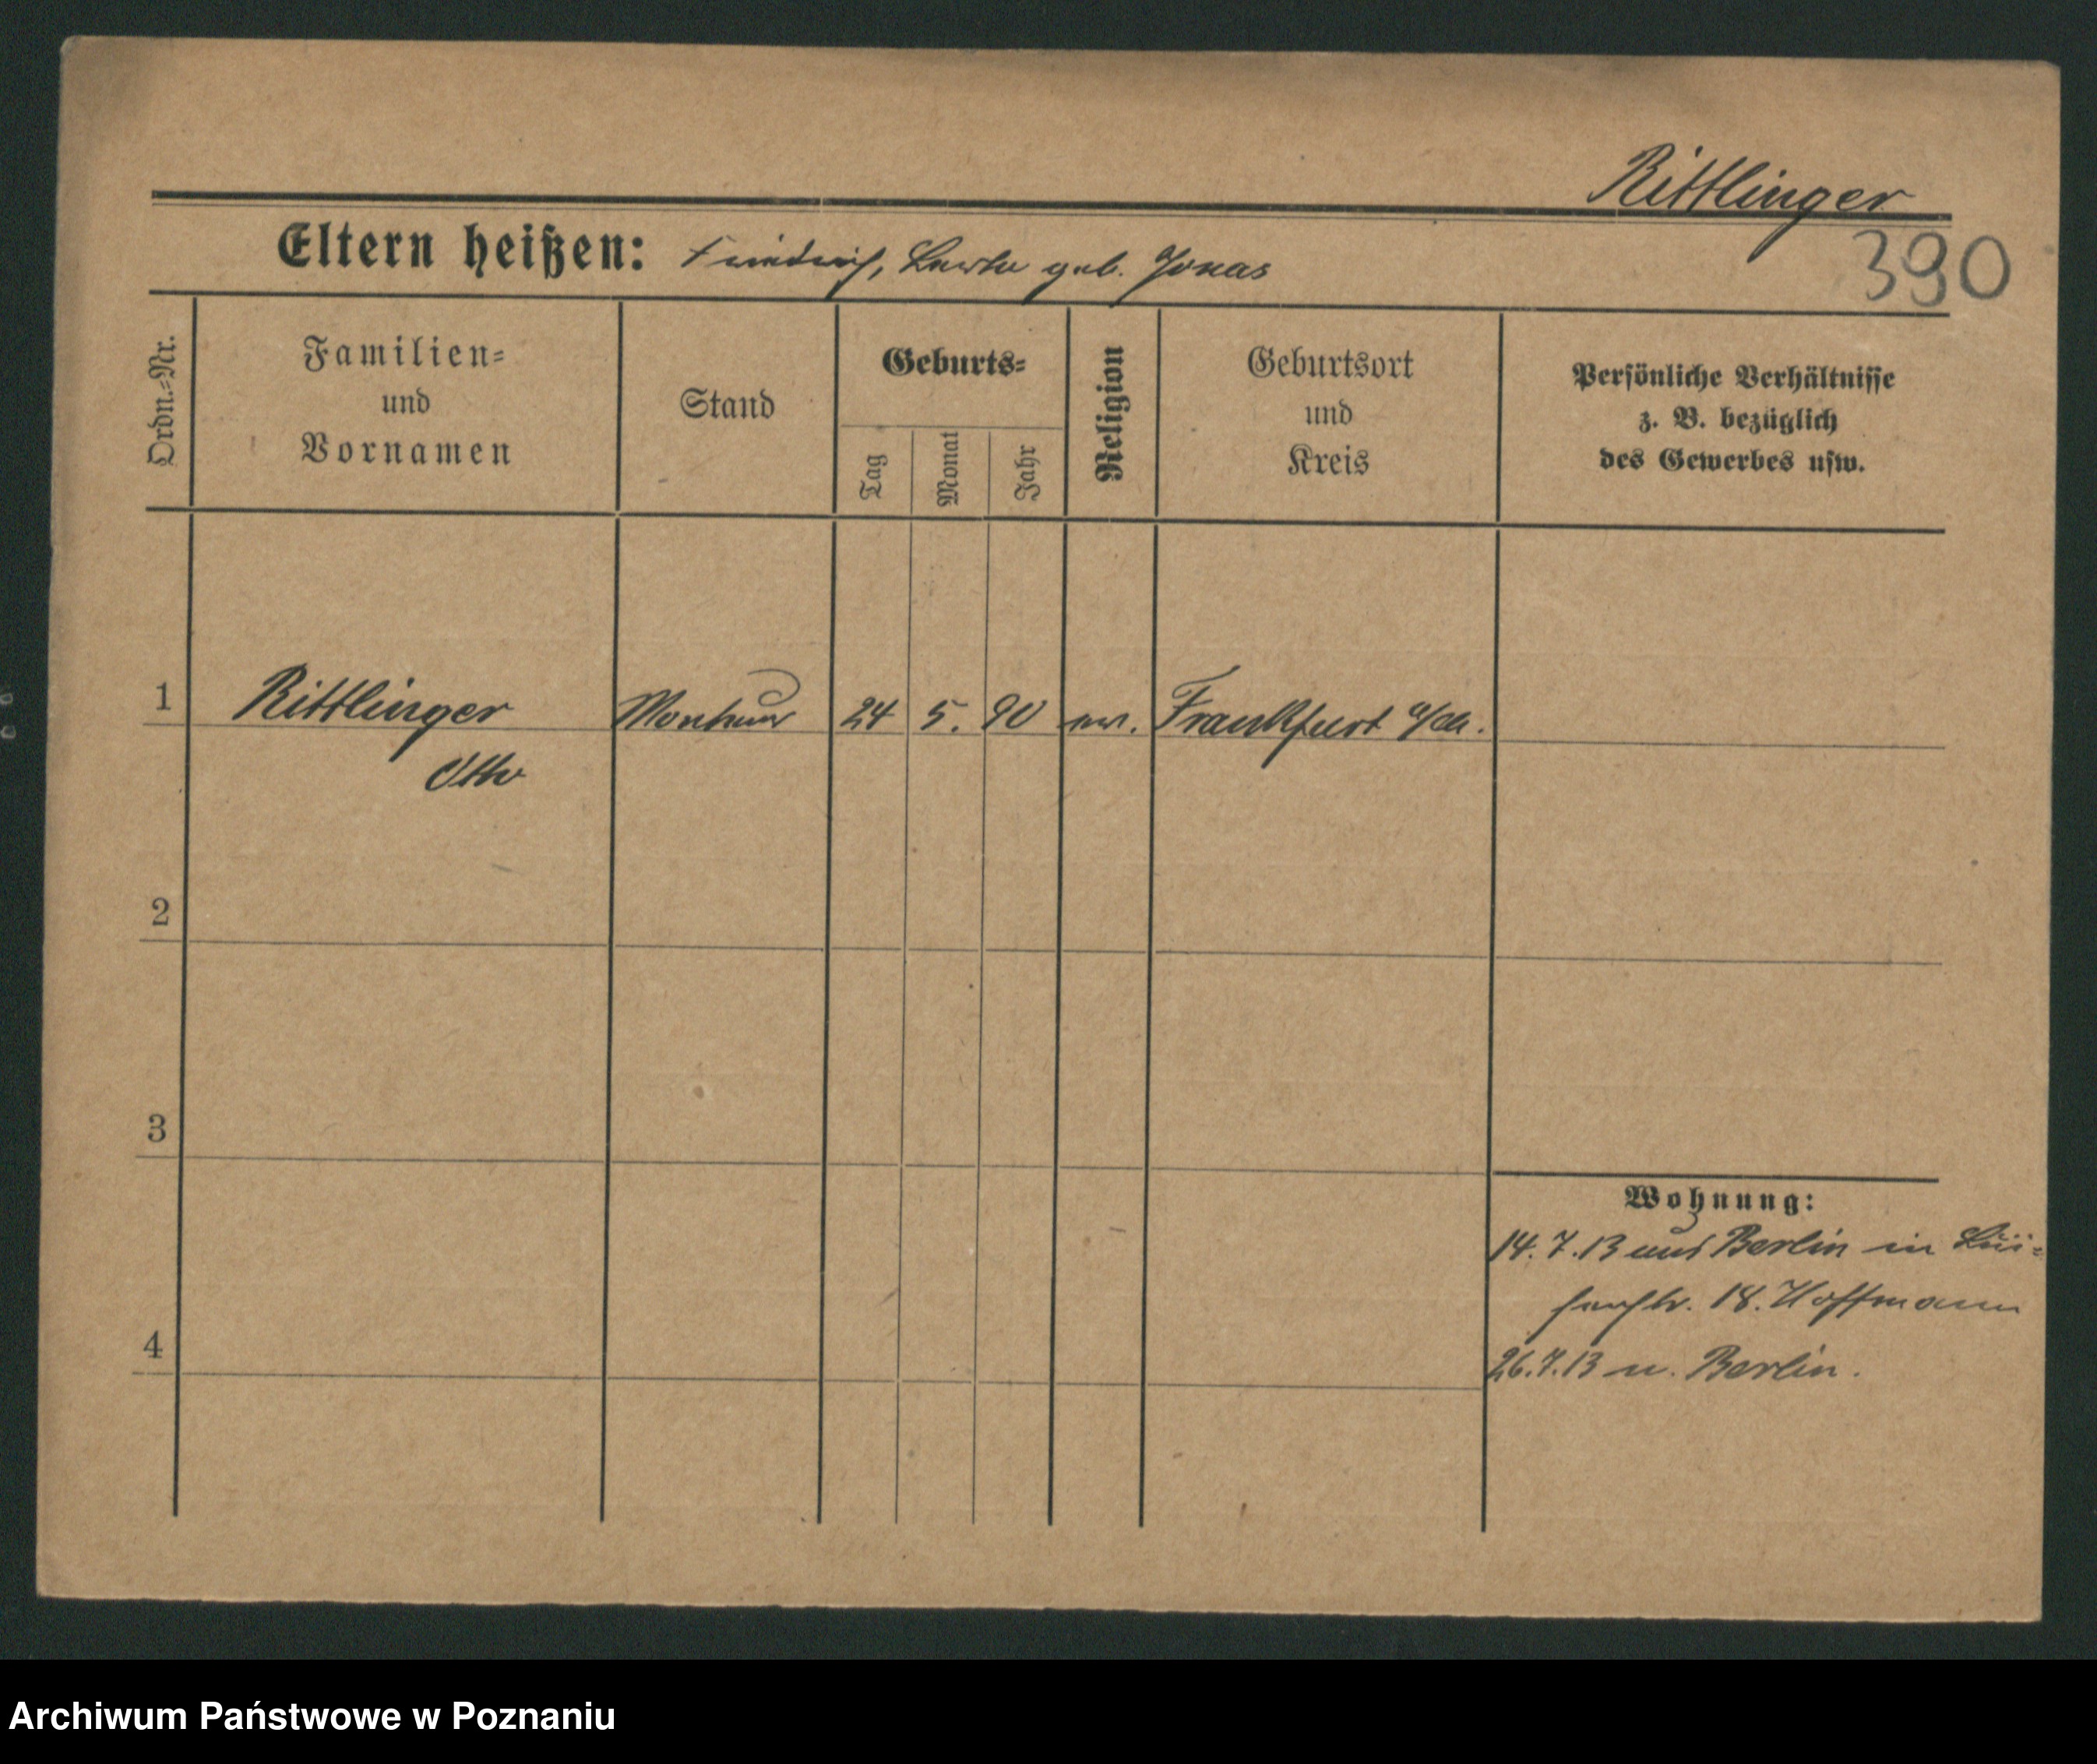 Rittlinger
390
Eltern heißen: Friedrich, Bertha geb. Jonas
Ordn.=Nr.
Familien=
und
Vornamen
Stand
Geburts=
Tag
Monat
Jahr
Religion
Geburtsort
und
Kreis
Persönliche Verhältnisse
z. B. bezüglich
des Gewerbes usw.
1 Rittlinger Monteur 24 5. 90 ev. Frankfurt
Otto
2
3
4
Wohnung:
14.7.13 aus Berlin in
18. Hoffmann
26.7.13 n. Berlin.
Archiwum Państwowe w Poznaniu